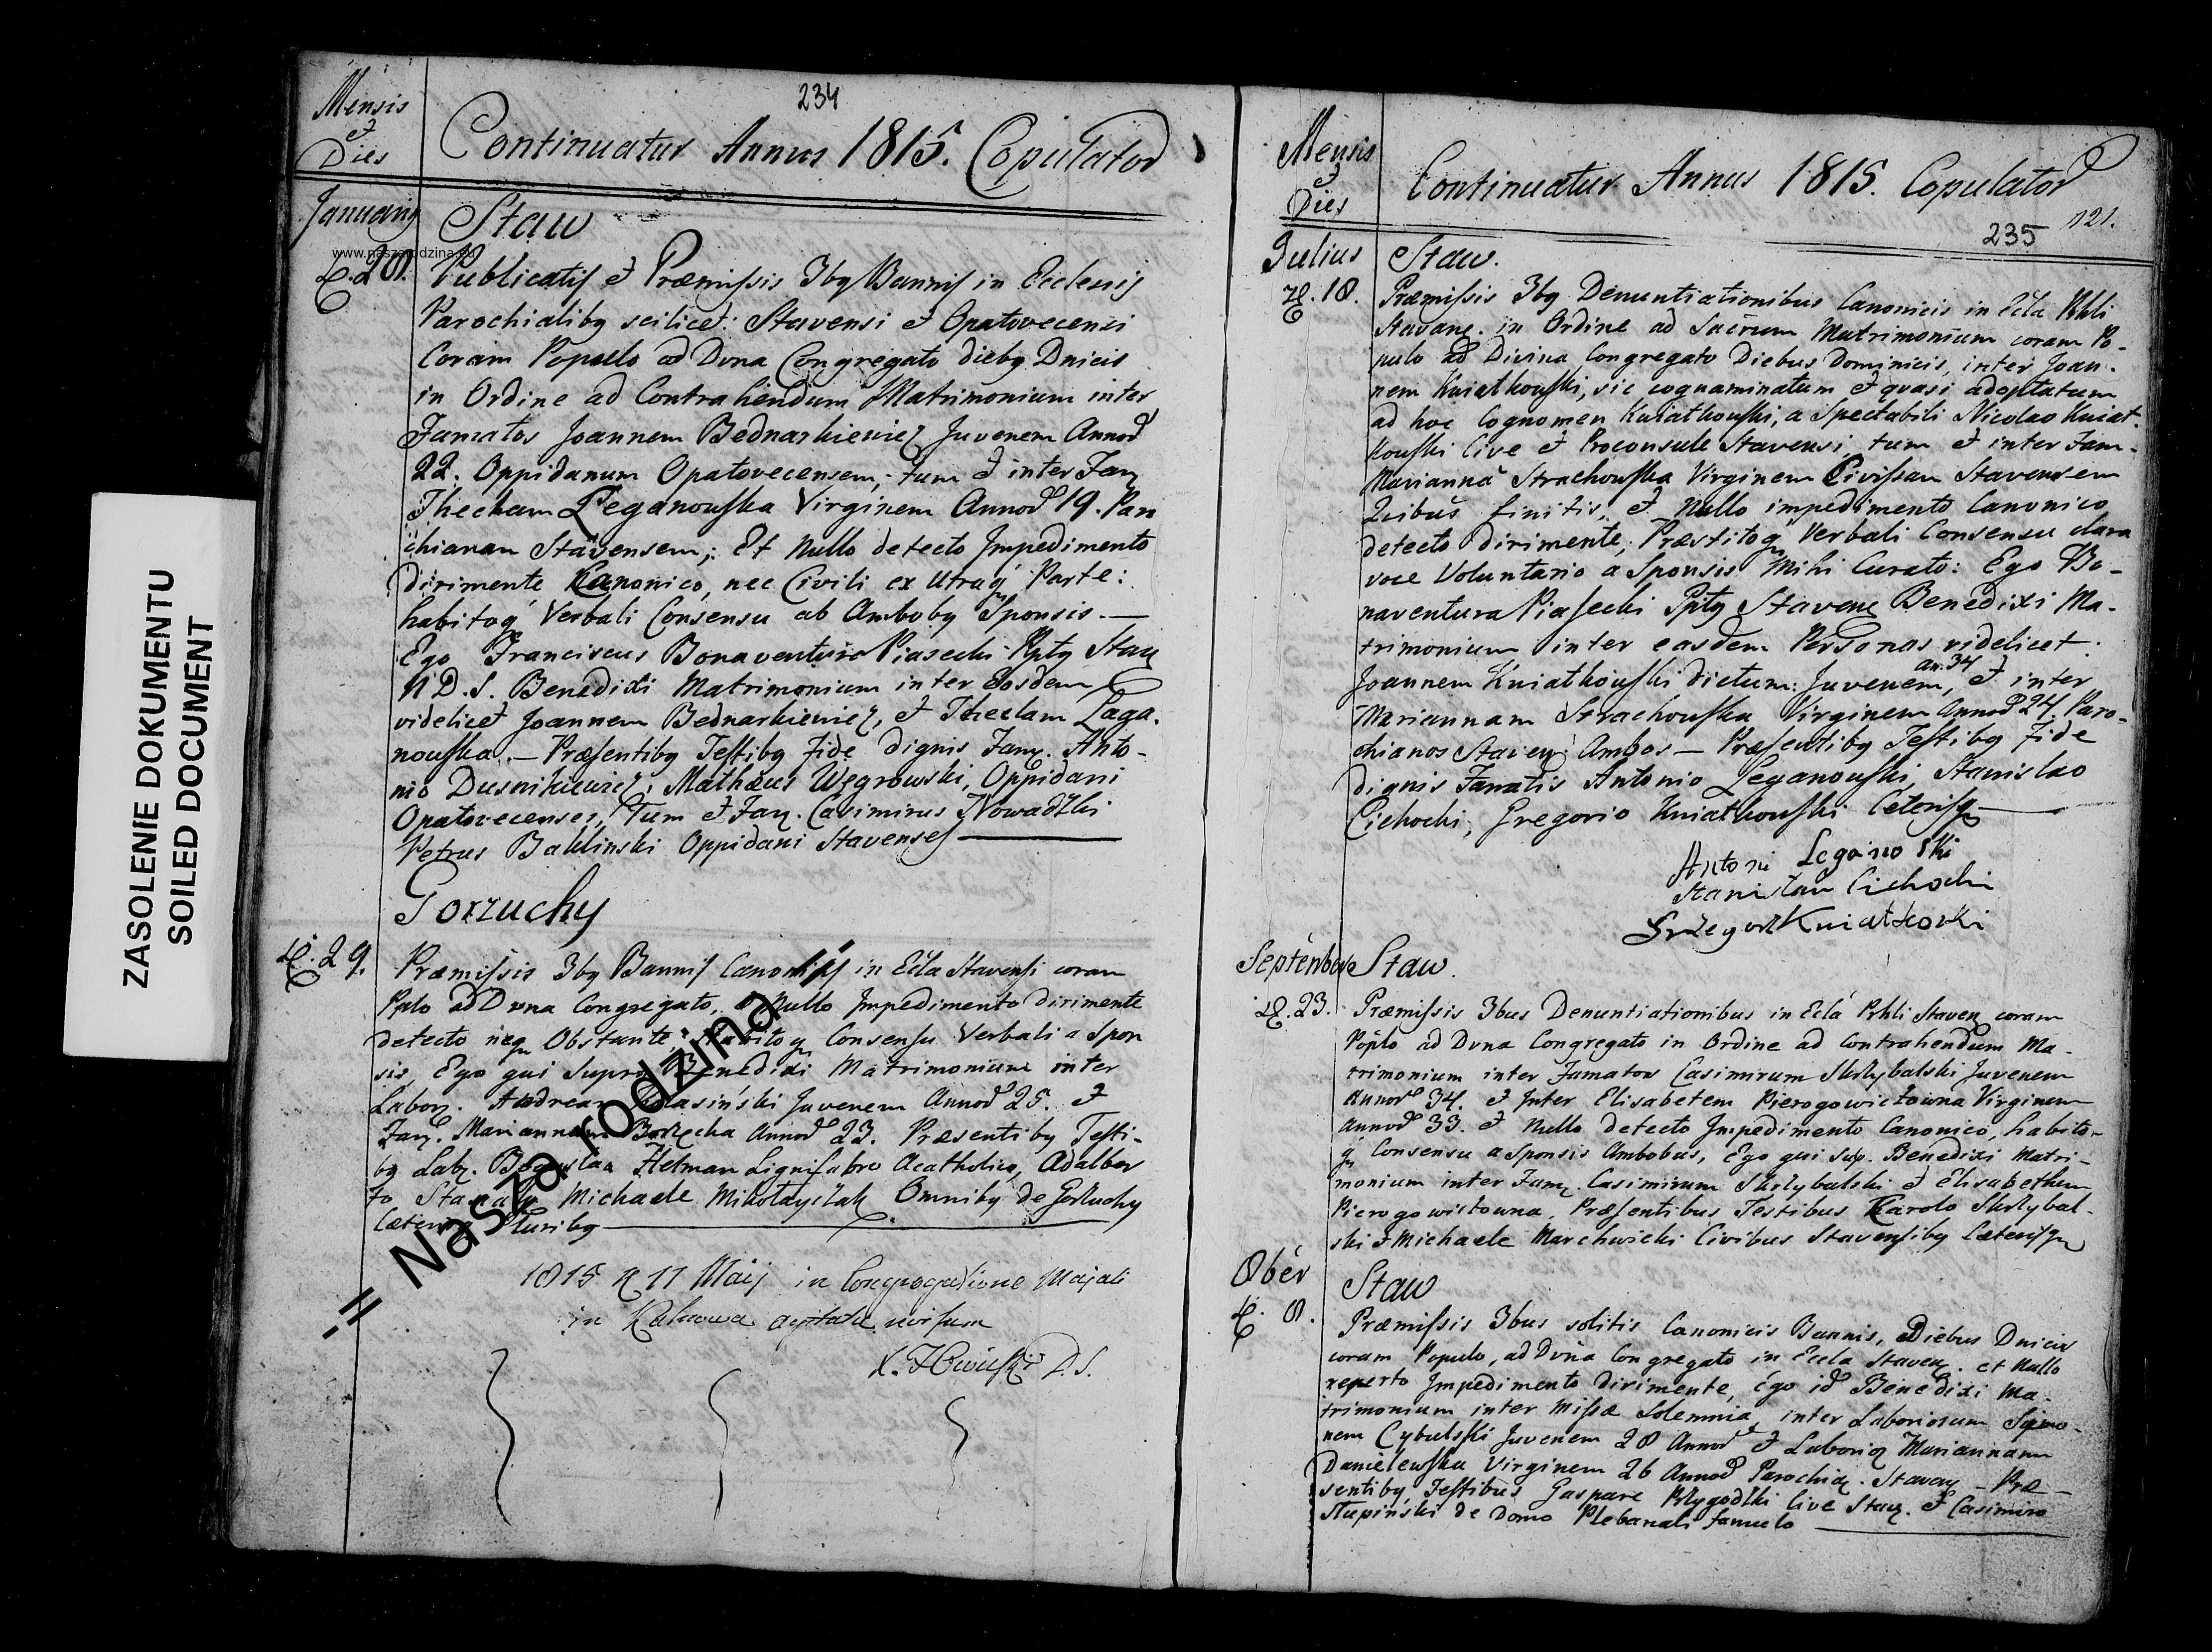 ZASOLENIE DOKUMENTU
SOILED DOCUMENT
234
Mensis
et
Dies
Continuatur Annus 1815. Copulator
Januarij
Staw
www.naszarodzina.eu
20.
Publicatis et Præmissis 3bq Bannis in Ecclesiis
Parochialibq scilicet: Stavensi et Opatovecensi
Coram Populo ad Dvna Congregato diebq Dnicis
in Ordine ad Contrahendum Matrimonium inter
Famatos Joannem Bednarkiewicz Juvenem Annor
22. Oppidanum Opatovecensem, tum et inter Fam
Theclam Leganowska Virginem Annor 19. Paro
chianam Stavensem; Et Nullo detecto Impedimento
dirimente Kanonico, nec Civili ex Utraq Parte:
habitoq Verbali Consensu ab Ambobq Sponsis.—
Ego Franciscus Bonaventura Piasecki Ppts Stav
N D. S. Benedixi Matrimonium inter Eosdem
videlicet Joannem Bednarkiewicz, et Theclam Laga.
nowska.— Præsentibq Testibq fide dignis Fam. Anto-
nio Dusnikiewicz, Mathæus Węgrowski, Oppidani
Opatovecenses, Tum et Fam. Casimirus Nowadzki
Petrus Baklinski Oppidani Stavenses
Gorzuchy
29.
Præmissis 3bq Bannis Canonicis in Ecla Stavensi coram
Pplo ad Dvna Congregato, Nullo Impedimento dirimente
detecto neq Obstante, habitoq Consensu Verbali a Spon
sis, Ego qui supra Benedixi Matrimonium inter
Labor. Andream Juvenem Annor 25. et
Fam. Mariannam Annor 23. Præsentibq Testi-
bq Lab. Hetman Lignifabro Acatholico, Adalber
to Michaele Mikołayczak Omnibq de Gorzuchy
Cæteris Pluribq
-= Nasza rodzina
1815 d 11 Maij in Congregatione Majali
in agitata visum
D.S.
Mensis
et
Dies
Continuatur Annus 1815. Copulator
235
121.
Julius
Staw.
18.
Præmissis 3bq Denuntiationibus Canonicis in Ecla Pchli
Stavane. in Ordine ad Sacrum Matrimonium coram Po-
pulo ad Divina Congregato Diebus Dominicis, inter Joan-
nem Kwiatkowski, sic cognaminatum et quasi adoptatum
ad hoc Cognomen Kwiatkowski, a Spectabili Nicolao Kwiat-
kowski Cive et Proconsule Stavensi, tum et inter Fam-
Marianna Strachowska Virginem Civissam Stavensem
Quibus finitis, et Nullo impedimento Canonico
detecto dirimente, Præstitoq Verbali Consensu clara
voce Voluntario a Sponsis Mihi Curato: Ego Bo-
naventura Piasecki Ppts Staven Benedixi Ma-
trimonium inter easdem Personas videlicet:
Joannem Kwiatkowski dictum: Juvenem, an. 34 et inter
Mariannam Strachowska Virginem Annor 24 Paro-
chianos Staven: Ambos — Præsentibq Testibq Fide
dignis Famatis Antonio Leganowski, Stanislao
Cichocki, Gregorio Kwiatkowski Ceterisq
Antoni Leganoski
Stanisław Cichocki
Grzegorz Kwiatkowski
September
Staw.
23.
Præmissis 3bus Denuntiationibus in Ecla Pchli Staven coram
Poplo ad Dvna Congregato in Ordine ad Contrahendum Ma-
trimonium inter Famatos Casimirum Skrzybalski Juvenem
Annor 34. et Inter Elisabetem Pierogowiczowna Virginem
annor 33. et Nullo detecto Impedimento Canonico, habito-
q Consensu a Sponsis Ambobus, Ego qui sup. Benedixi Matri-
monium inter Fam. Casimirum Skrzybalski et Elisabethem
Pierogowiczowna, Præsentibus Testibus Karolo Skrzybal-
ski et Michaele Marchwicki Civibus Stavensibq Cæterisq
8ber
Staw
8.
Præmissis 3bus solitis Canonicis Bannis, Diebus Dnicis
coram Populo, ad Dvna Congregato in Ecla Staven. et Nullo
reperto Impedimento dirimente, Ego id Benedixi Ma-
trimonium inter Missæ Solemnia, inter Laboriosum Symo-
nem Cybulski Juvenem 28 Annor et Laborios Mariannam
Danielewska Virginem 26 Annor Parochia. Staven — Præ-
sentibq Testibus Gaspare Przygodzki Cive Stav. et Casimiro
Stupiński de Domo Plebanali famulo